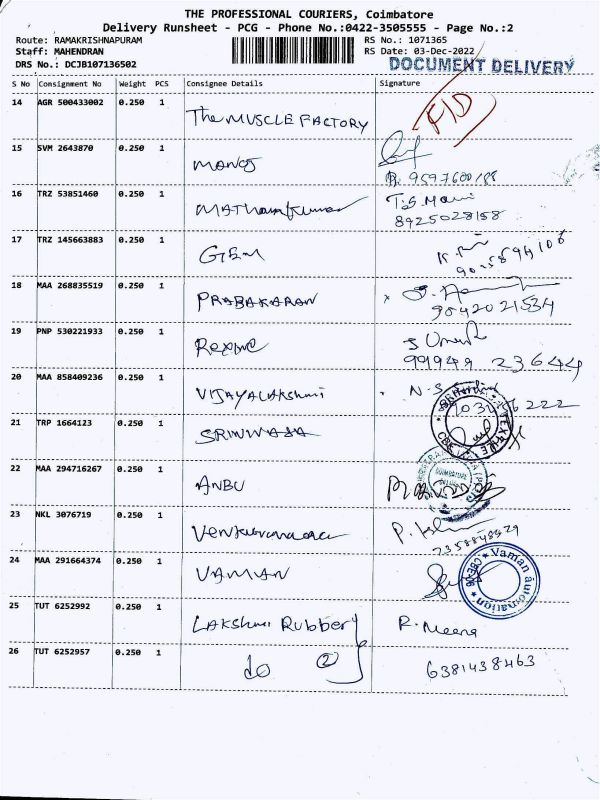 THE PROFESSIONAL COURIERS, Coimbatore
Delivery Runsheet - PCG - Phone No.:0422-3505555 - Page No.:2
Route: RAMAKRISHNAPURAM
RS No.: 1071365
Staff: MAHENDRAN
RS Date: 03-Dec-2022
DRS No.: DCJB107136502
DOCUMENT DELIVERY
S No Consignment No Weight PCS Consignee Details Signature
14 AGR 500433002 0.250 1 The MUSCLE FACTORY F/D
15 SVM 2643870 0.250 1 MANOJ
16 TRZ 53851460 0.250 1 T.S. Mani
8925028158
17 TRZ 145663883 0.250 1 GEM
18 MAA 268835519 0.250 1 PRABAKARAN
19 PNP 530221933 0.250 1
99949 23644
20 MAA 858409236 0.250 1 VIJAYALAKSHMI N.S.
21 TRP 1664123 0.250 1 SRINIVASA
22 MAA 294716267 0.250 1 ANBU
23 NKL 3076719 0.250 1
24 MAA 291664374 0.250 1 VAMAN Vaman automation
25 TUT 6252992 0.250 1 LAKSHMI Rubbery R. Meena
26 TUT 6252957 0.250 1 do 2 6381438463